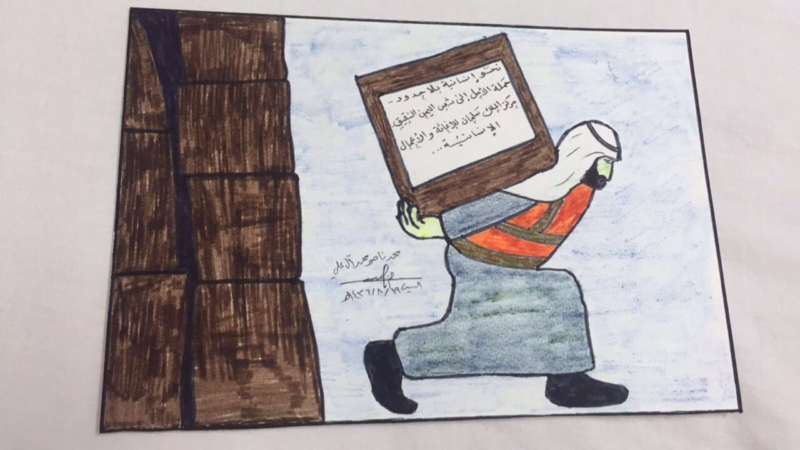 نحو إنسانية بلا حدود..
حملة الأمل إلى شعب اليمن الشقيق
مركز الملك سلمان للإغاثة والأعمال
الإنسانية...
محمد ناصر محمد آل علي
السبت ١٤٣٦/٨/١٩هـ